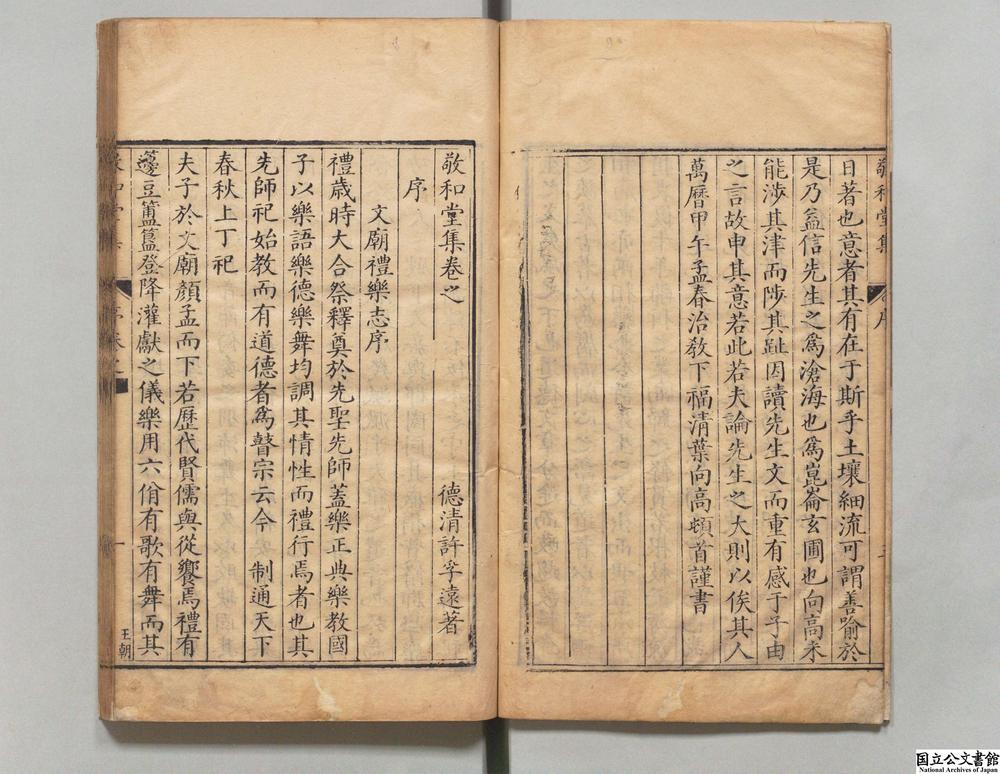 敬和堂集
序
日著也意者其有在于斯乎土壤細流可謂善喻於
是乃益信先生之爲滄海也爲崑崙玄圃也向高未
能涉其津而陟其趾因讀先生文而重有感于子由
之言故申其意若此若夫論先生之大則以俟其人
萬曆甲午孟春治教下福清葉向高頓首謹書
敬和堂集卷之
序
德清許孚遠著
文廟禮樂志序
禮歲時大合祭釋奠於先聖先師蓋樂正典樂教國
子以樂語樂德樂舞均調其情性而禮行焉者也其
先師祀始教而有道德者爲瞽宗云今 制通天下
春秋上丁祀
夫子於文廟顏孟而下若歷代賢儒與從饗焉禮有
籩豆簠簋登降灌獻之儀樂用六佾有歌有舞而其
一
王朝
国立公文書館
National Archives of Japan